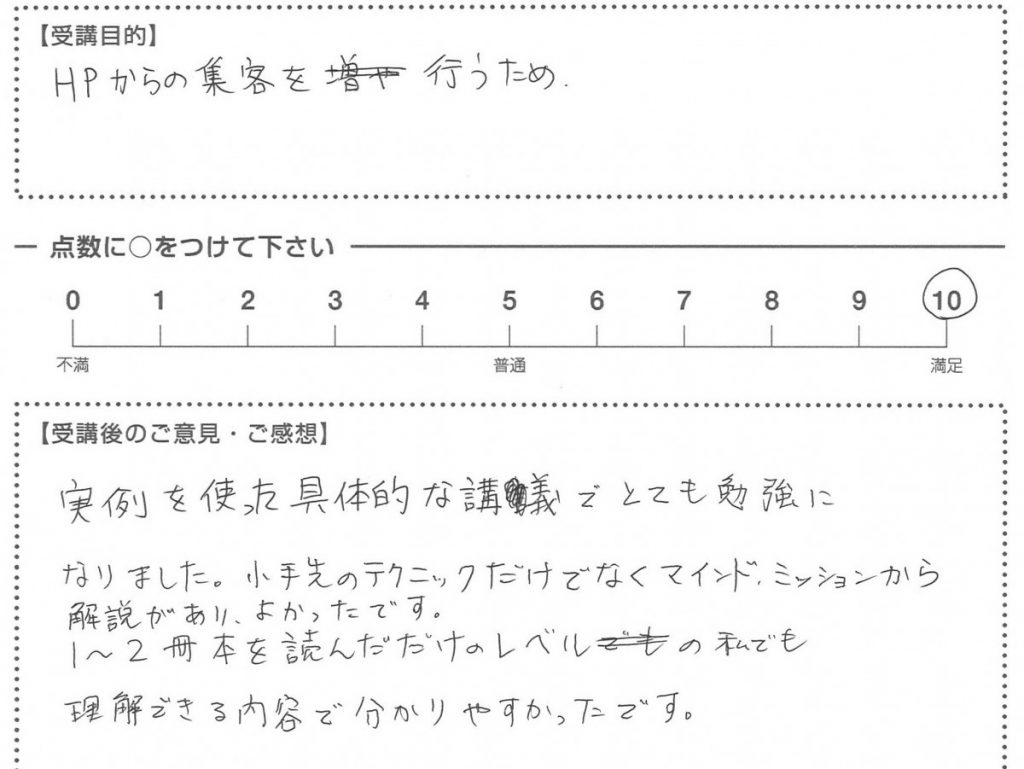 【受講目的】
HPからの集客を増や行うため.
点数に○をつけて下さい
0 1 2 3 4 5 6 7 8 9 10
不満 普通 満足
【受講後のご意見・ご感想】
実例を使った具体的な講義でとても勉強に
なりました。小手先のテクニックだけでなくマインド、ミッションから
解説があり、よかったです。
1〜2冊本を読んだだけのレベルでもの私でも
理解できる内容で分かりやすかったです。